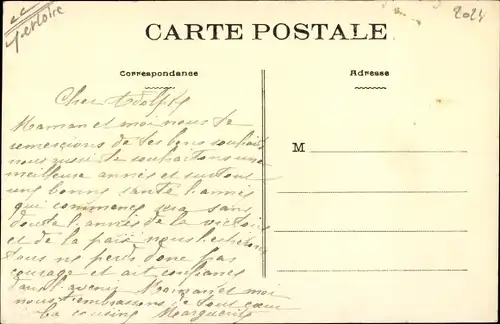 et Loire
2024
CARTE POSTALE
Correspondance
Adresse
Cher Adolphe
Maman et moi nous te
remercions de tes bons souhaits
nous aussi te souhaitons une
meilleure année et surtout
une bonne santé l'année
qui commence sera sans
doute l'année de la victoire
et de la paix nous l'espérons
tous ne perds donc pas
courage et ait confiance
dans l'avenir Maman et moi
nous t'embrassons de tout cœur
ta cousine Marguerite
M